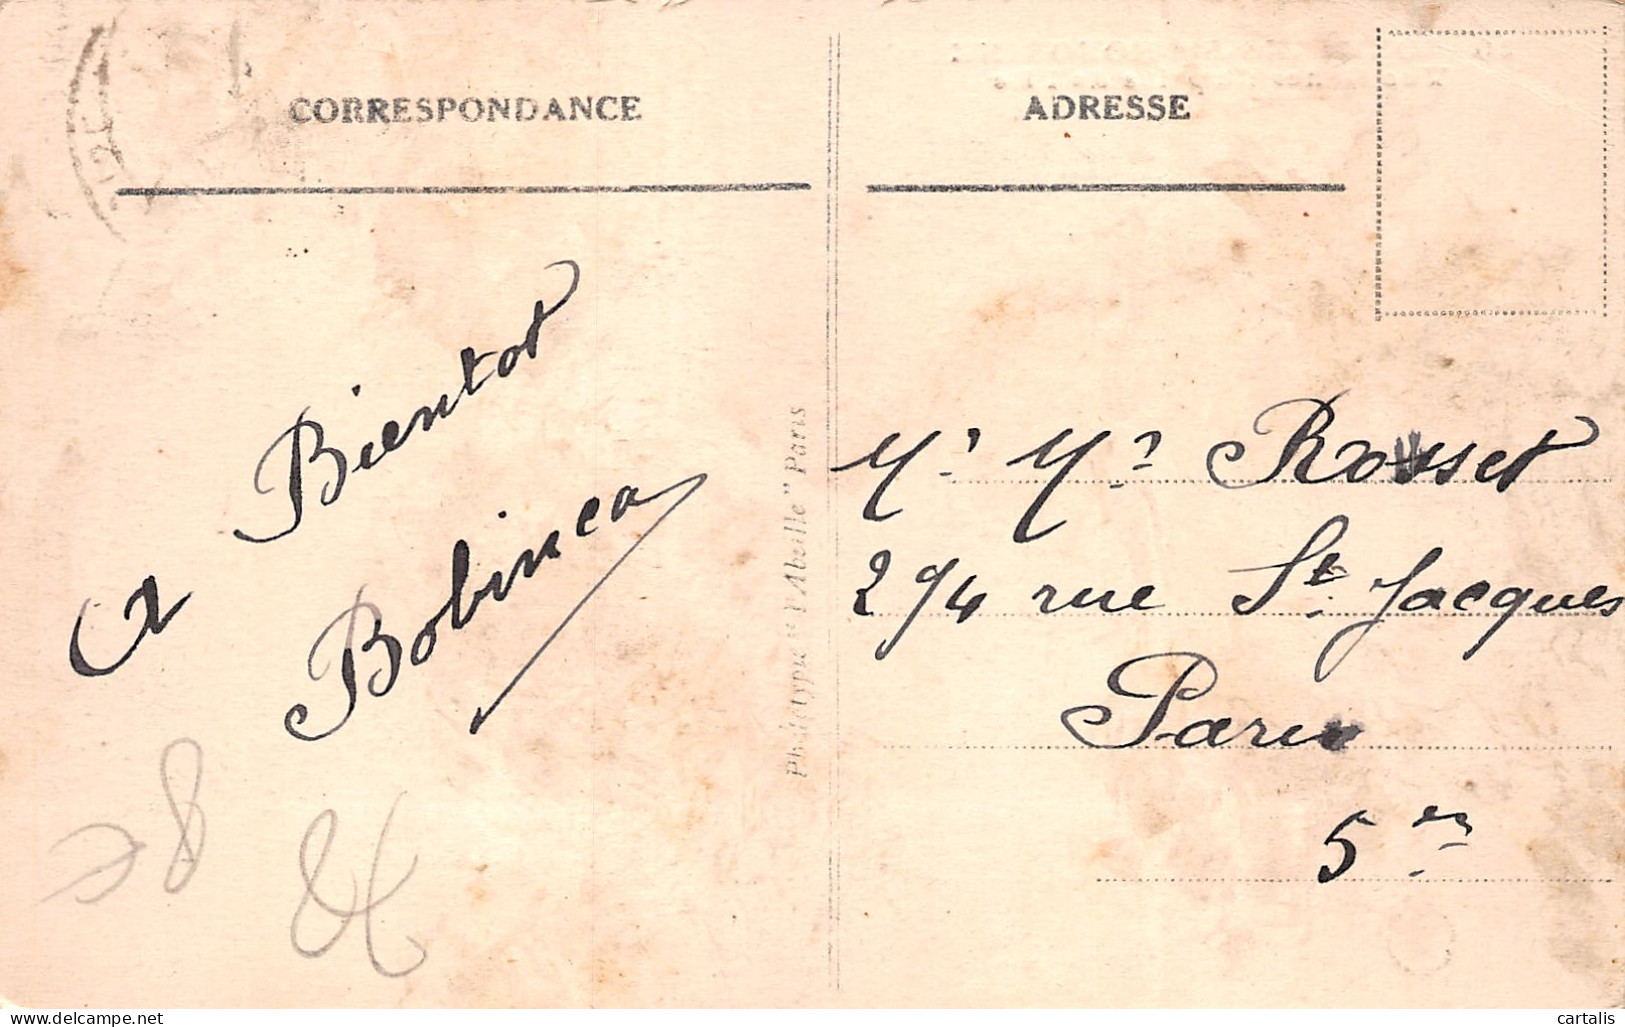 CORRESPONDANCE
ADRESSE
A Bientot
Bobinea
Phototypie "l'Abeille" Paris
Mr Mr Rousset
294 rue St. Jacques
Paris
5em
78
www.delcampe.net
cartalis